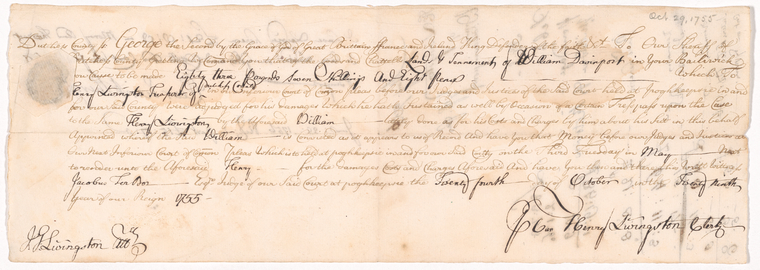 Oct 29, 1755
Dutchess County ss George the Second by the Grace of God of Great Brittain ffrance and Ireland King Defender of the faith &c To Our Sheriff of
Dutchess County Greeting We Command you that of the Goods and Chattels Land & Tenements of William Davenport in your Bailiwick
you Cause to be made Eighty three Pounds Seven Shillings And Eight pence Which To
Henry Livingston in our Inferiour Court of Common Pleas before our Judges and Justices of the Said Court held at poghkeepsie in and
for our Said County were adjudged for his Damages which he hath Sustained as well by Occasion of a Certain Trespass upon the Case
to the Same Henry Livingston by the Aforesaid William done as for his Costs and Charges by him about his Suit in this behalf
Expended whereof the Said William is Convicted as it appears to us of Record And have You that Money before our Judges and Justices at
our Next Inferiour Court of Common Pleas Which is to be held at poghkeepsie in and for our said County on the third Tuesday in May Next
to render unto the Aforesaid Henry for the Damages Costs and Charges Aforesaid And have you then and there this Writt Witness
Jacobus Ter Bos Esqr Judge of our Said Court at poghkeepsie the Twenty fourth Day of October in the Twenty Ninth
Year of our Reign 1755
J G Livingston Atty
Per Henry Livingston Clerk